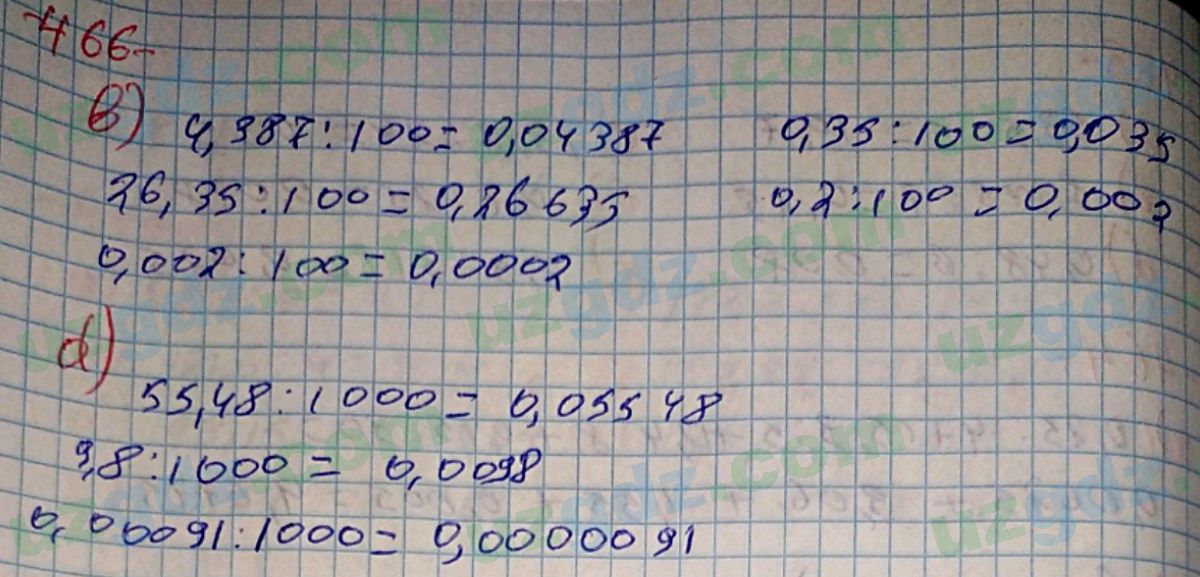 466-
в) 4,387:100=0,04387 0,35:100=0,035
26,35:100=0,26635 0,2:100=0,002
0,002:100=0,0002
d)
55,48:1000=0,05548
9,8:1000=0,0098
0,00091:1000=0,0000091
uzgdz.com